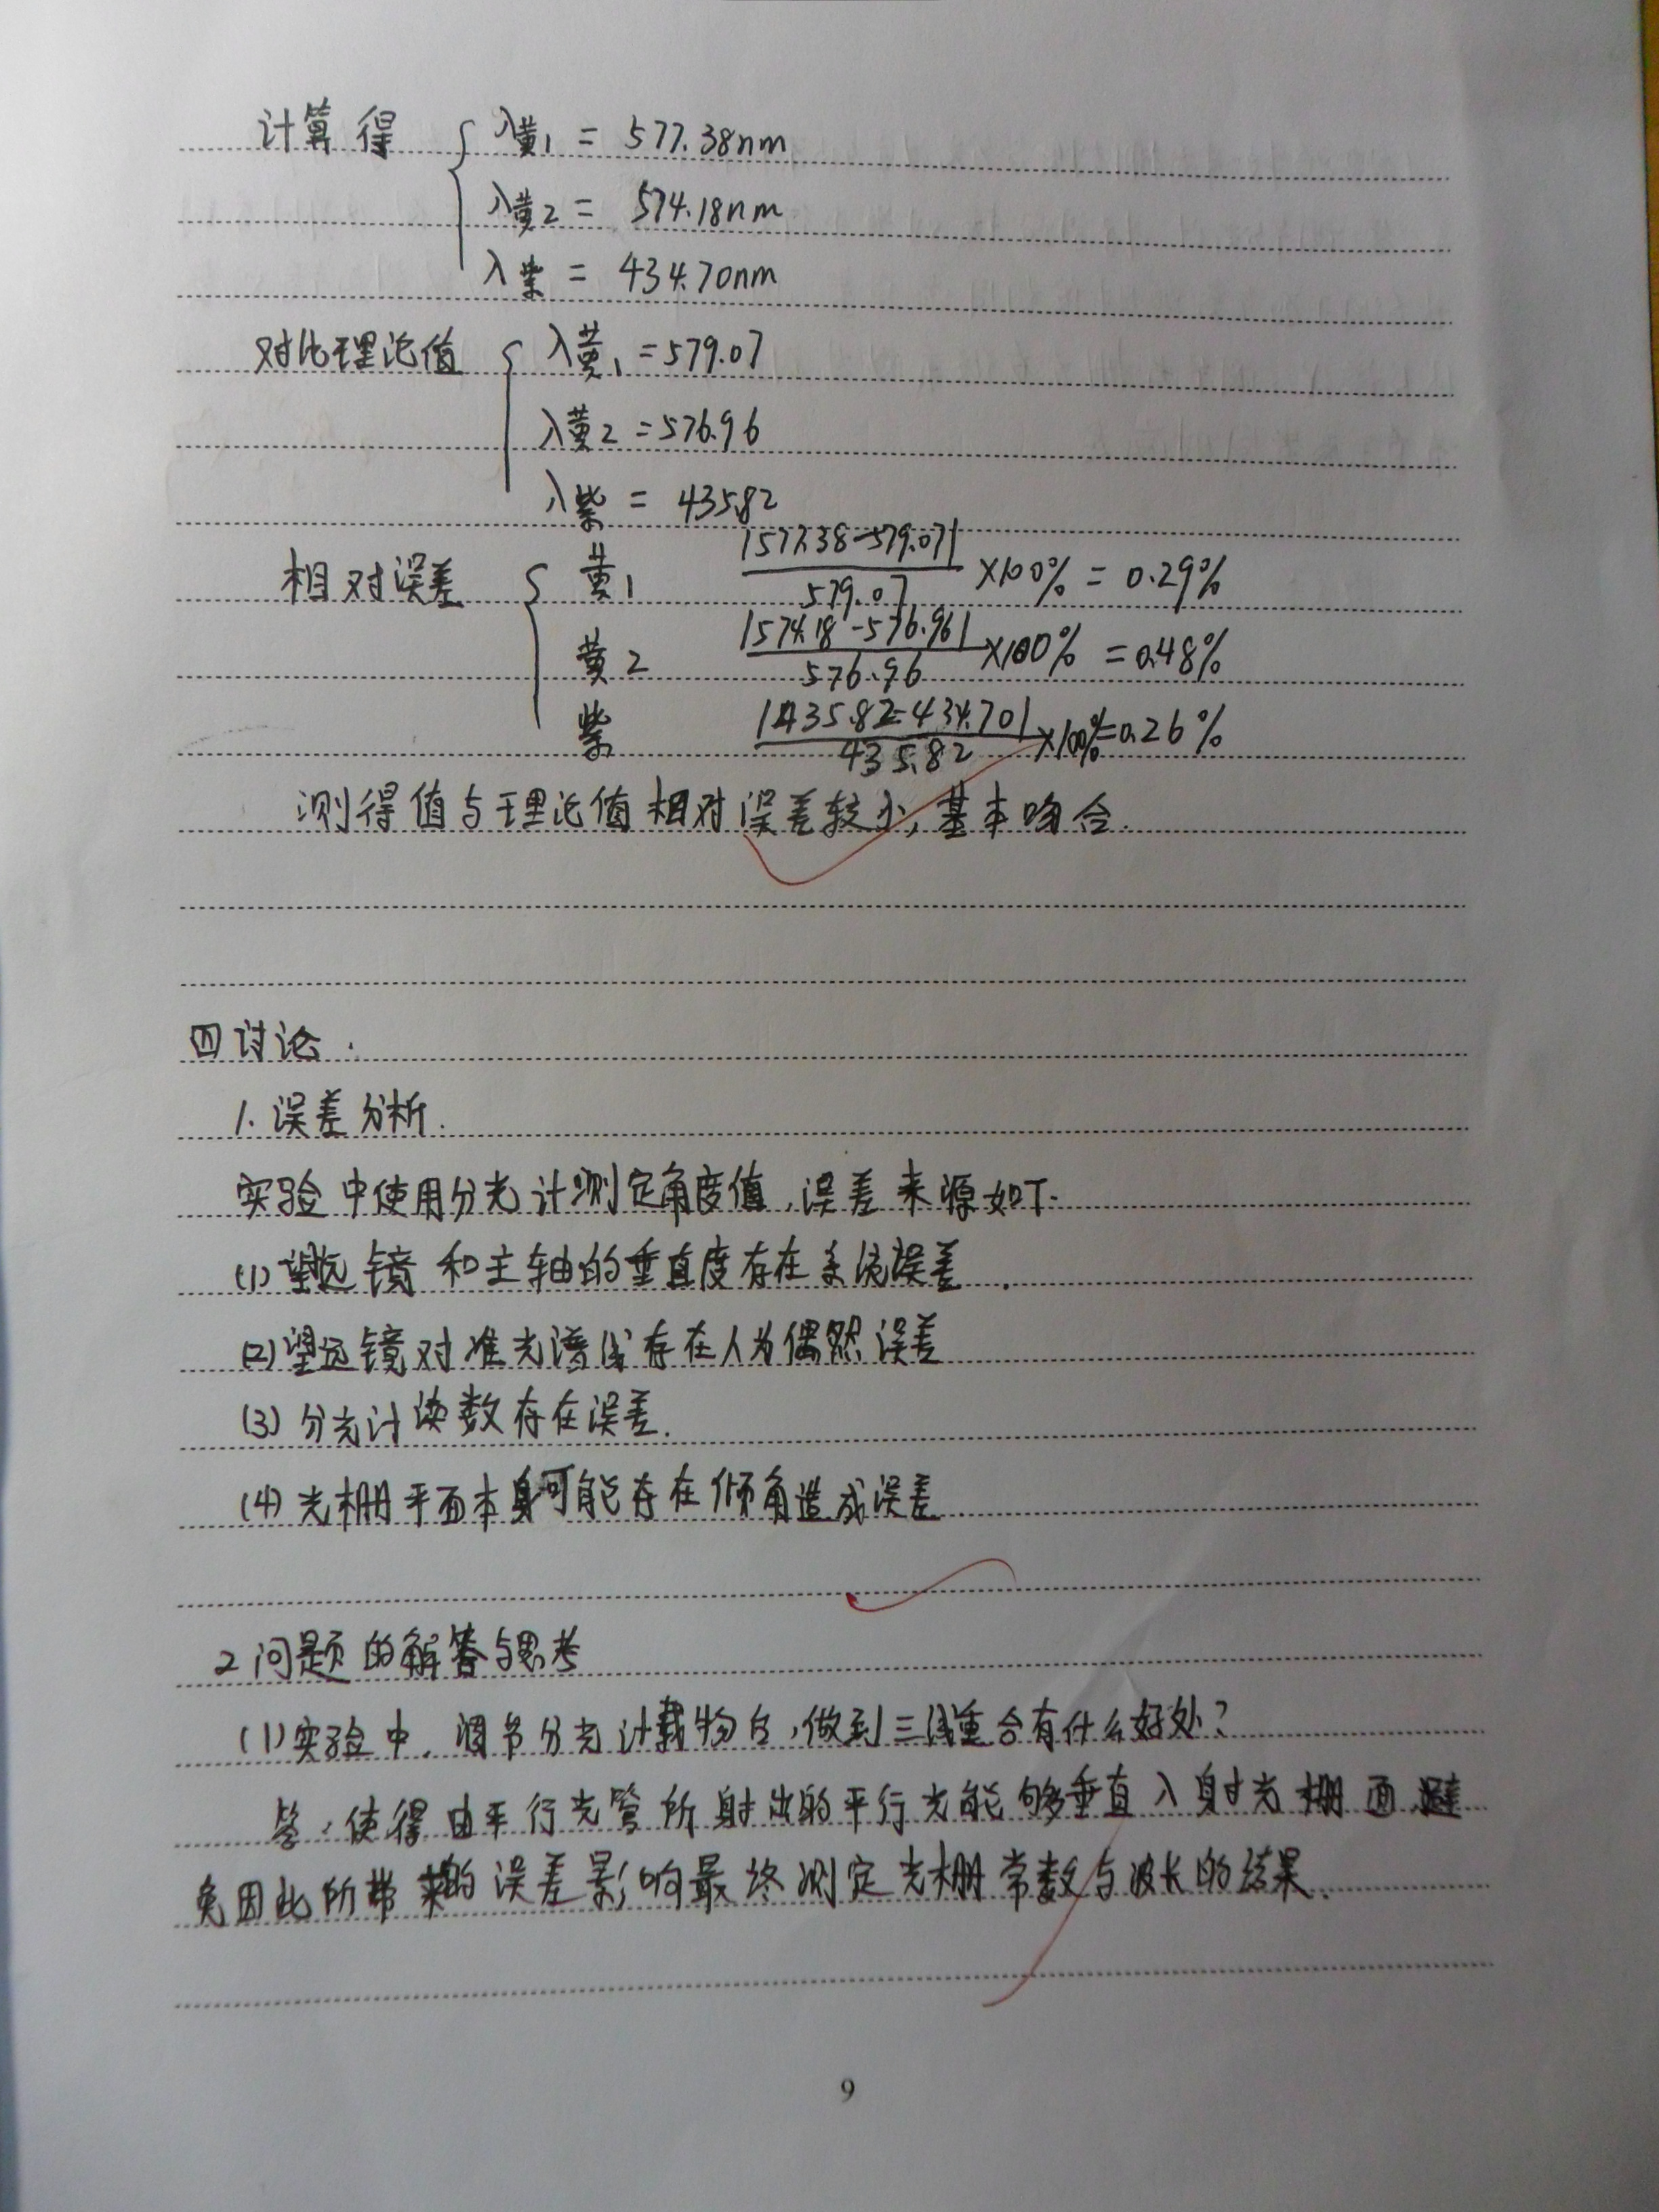 计算得 { λ黄1 = 577.38nm
λ黄2 = 574.18nm
λ紫 = 434.70nm
对比理论值 { λ黄1 = 579.07
λ黄2 = 576.96
λ紫 = 435.82
相对误差 { 黄1 |577.38-579.07|/579.07 ×100% = 0.29%
黄2 |574.18-576.96|/576.96 ×100% = 0.48%
紫 |435.82-434.70|/435.82 ×100% = 0.26%
测得值与理论值相对误差较小,基本吻合.
四讨论.
1.误差分析.
实验中使用分光计测定角度值,误差来源如下.
(1)望远镜和主轴的垂直度存在系统误差.
(2)望远镜对准光谱线存在人为偶然误差
(3)分光计读数存在误差.
(4)光栅平面本身可能存在倾角造成误差
2问题的解答与思考
(1)实验中,调节分光计载物台,做到三线重合有什么好处?
答:使得由平行光管所射出的平行光能够垂直入射光栅面,避
免因此所带来的误差影响最终测定光栅常数与波长的结果.
9